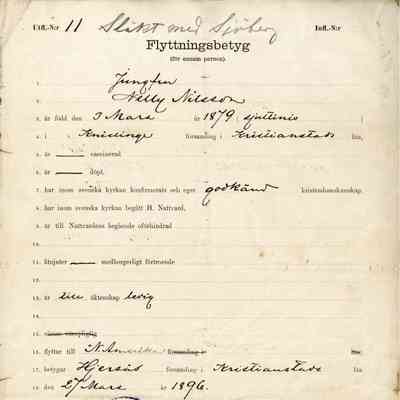 Utfl.-N:r 11 Släkt med Sjöberg Infl.-N:r
Flyttningsbetyg
(för ensam person).
1. Jungfru
2. Nelly Nilsson
3. är född den 3 Mars år 1879, sjuttinio
4. i Knislinge församling i Kristianstads län,
5. är vaccinerad
6. är döpt.
7. har inom svenska kyrkan konfirmerats och eger godkänd kristendomskunskap.
8. har inom svenska kyrkan begått H. Nattvard,
9. är till Nattvardens begående oförhindrad
10.
11. åtnjuter medborgerligt förtroende
12.
13. är till äktenskap ledig
14.
15.
16. flyttar till N. Amerika församling i län
17. betygar Hjersås församling i Kristianstads län
18. den 27 Mars år 1896.